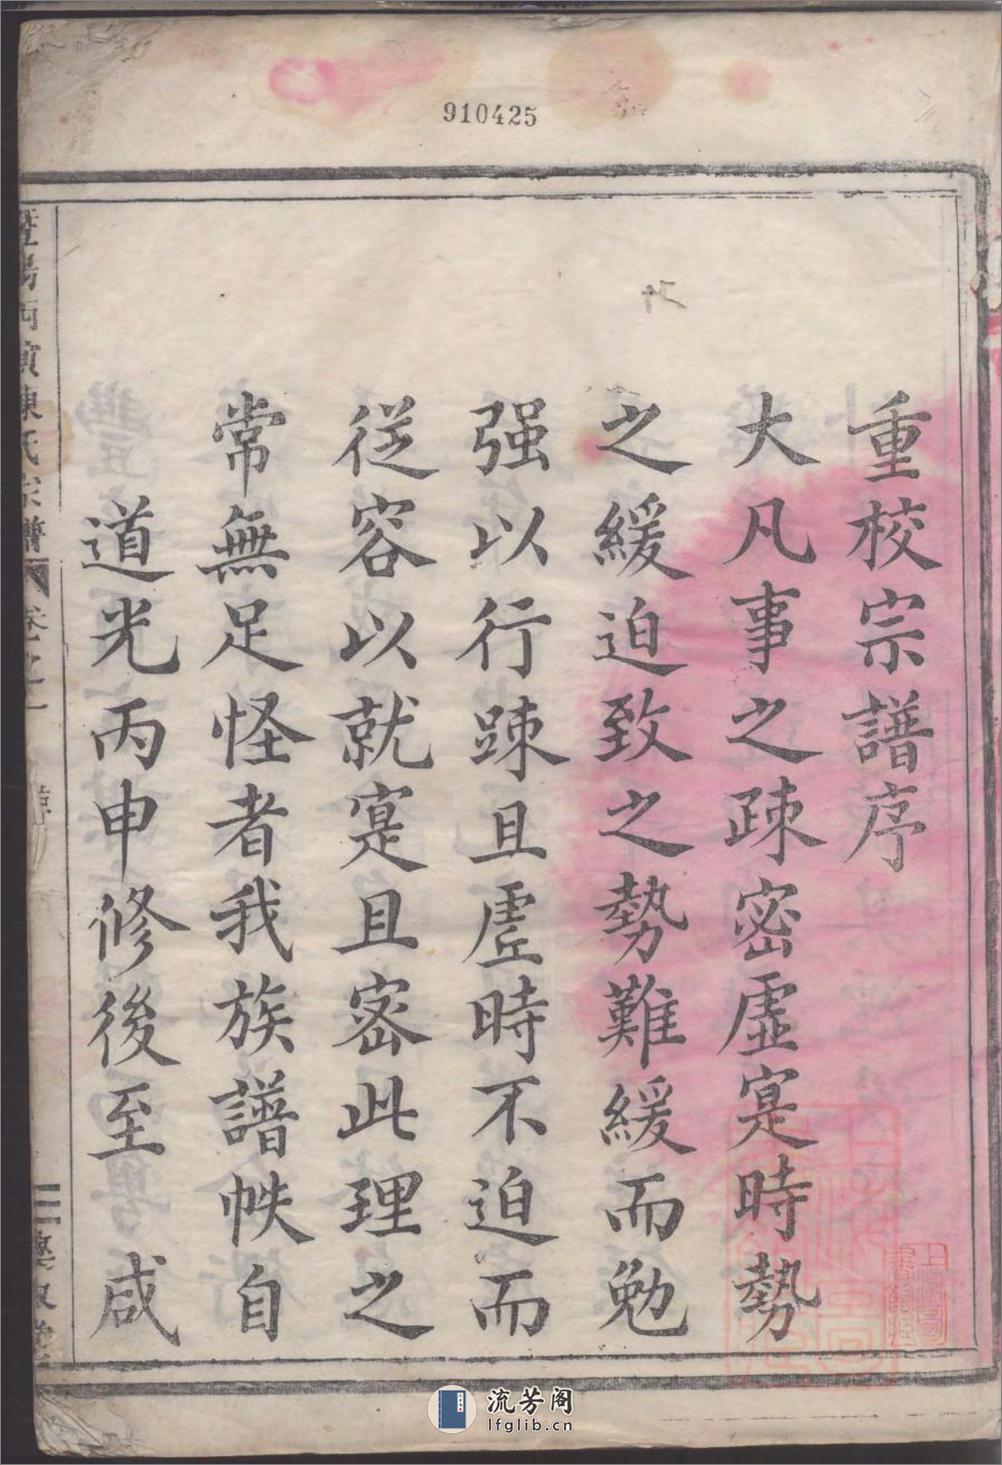 910425
重校宗譜序
大凡事之疎密虛寔時勢
之緩迫致之勢難緩而勉
强以行踈且虗時不迫而
從容以就寔且密此理之
常無足怪者我族譜帙自
道光丙申修後至咸
氏宗譜
流芳阁
lfglib.cn